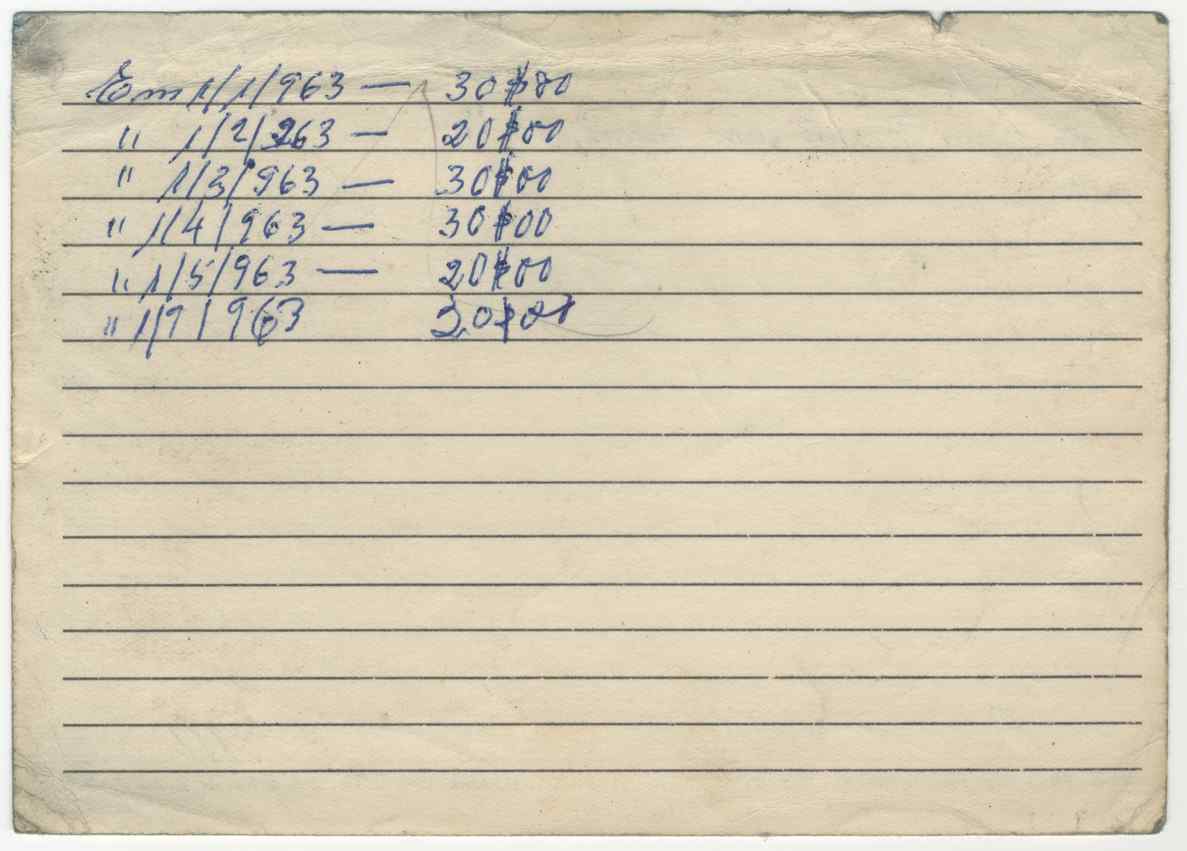 Em 1/1/963 — 30$00
" 1/2/963 — 20$00
" 1/3/963 — 30$00
" 1/4/963 — 30$00
" 1/5/963 — 20$00
" 1/9/963 20$00